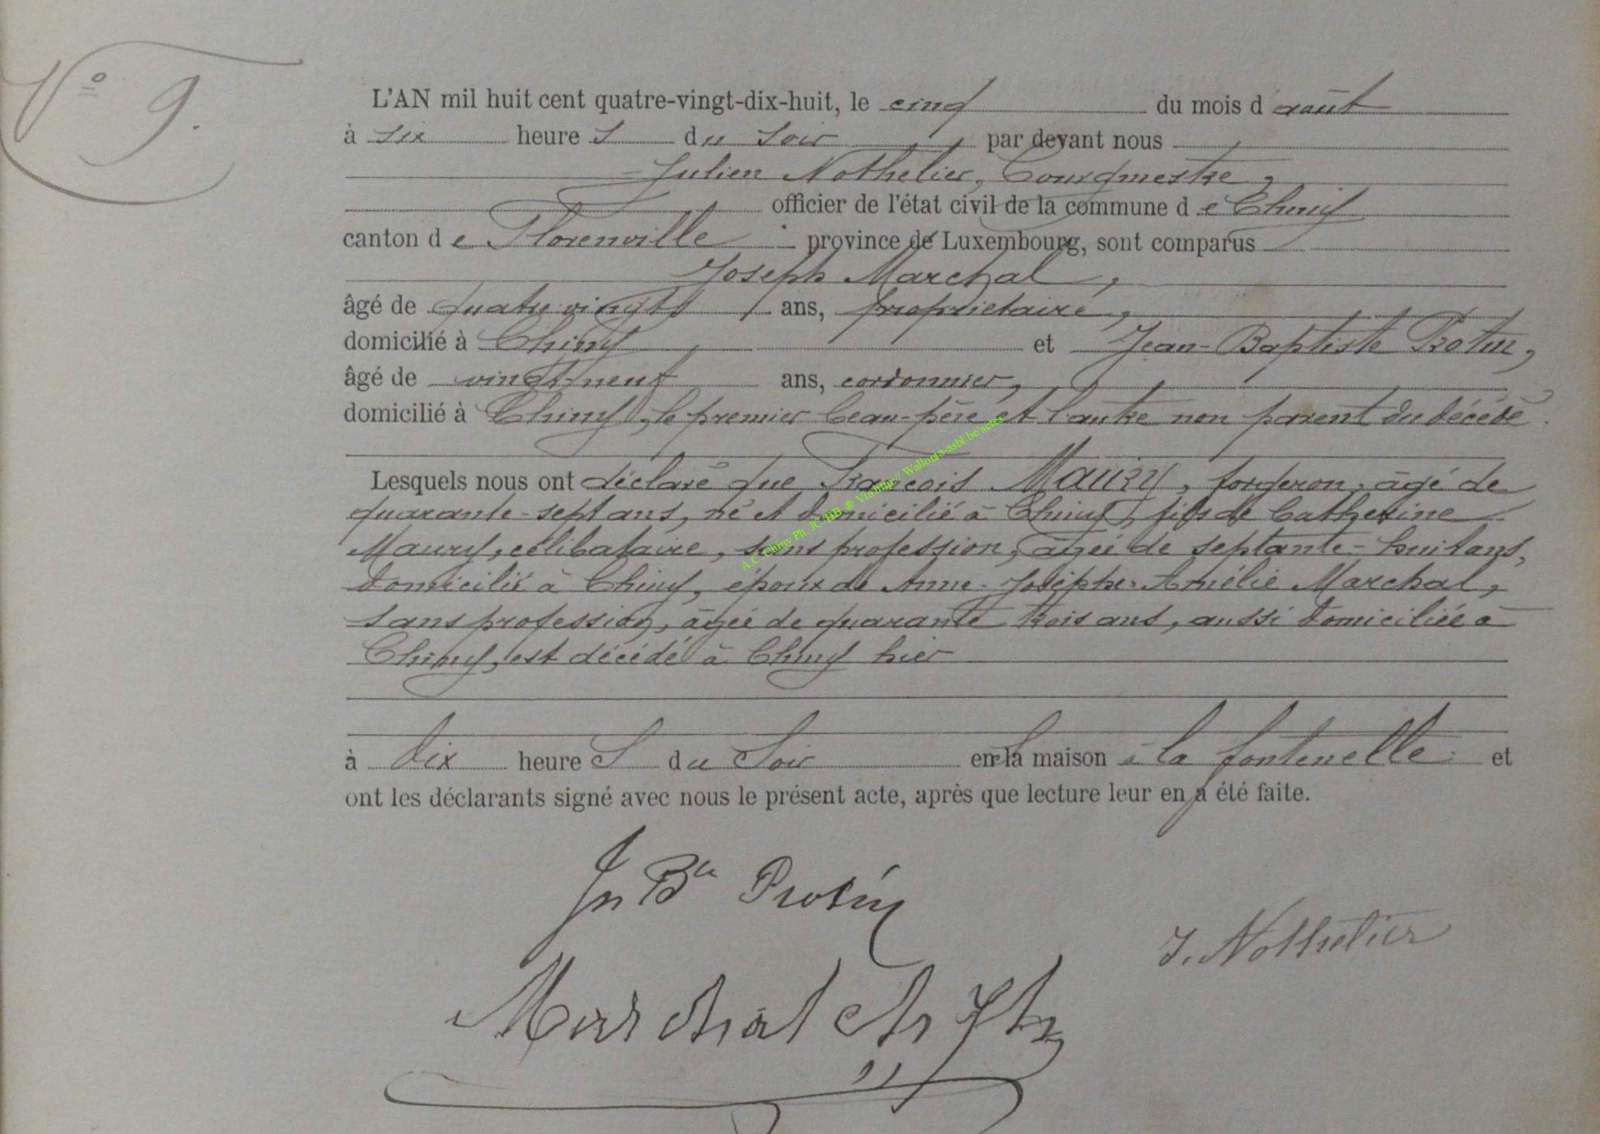 No 9.
L'AN mil huit cent quatre-vingt-dix-huit, le cinq du mois d'août
à six heures du soir par devant nous
Julien Nothelier, Bourgmestre,
officier de l'état civil de la commune de Chiny
canton de Florenville province de Luxembourg, sont comparus
Joseph Marchal,
âgé de quatre vingts ans, propriétaire,
domicilié à Chiny et Jean-Baptiste Protin,
âgé de vingt neuf ans, cordonnier,
domicilié à Chiny, le premier beau-père et l'autre non parent du décédé.
Lesquels nous ont déclaré que François Maury, forgeron, âgé de
quarante-sept ans, né et domicilié à Chiny, fils de Catherine
Maury, célibataire, sans profession, âgée de septante-huit ans,
domiciliée à Chiny, époux de Anne-Josèphe-Amélie Marchal,
sans profession, âgée de quarante trois ans, aussi domiciliée à
Chiny, est décédé à Chiny hier
à dix heures du soir en sa maison à la fontenelle et
ont les déclarants signé avec nous le présent acte, après que lecture leur en a été faite.
Jn Bte Protin
J. Nothelier
Marchal